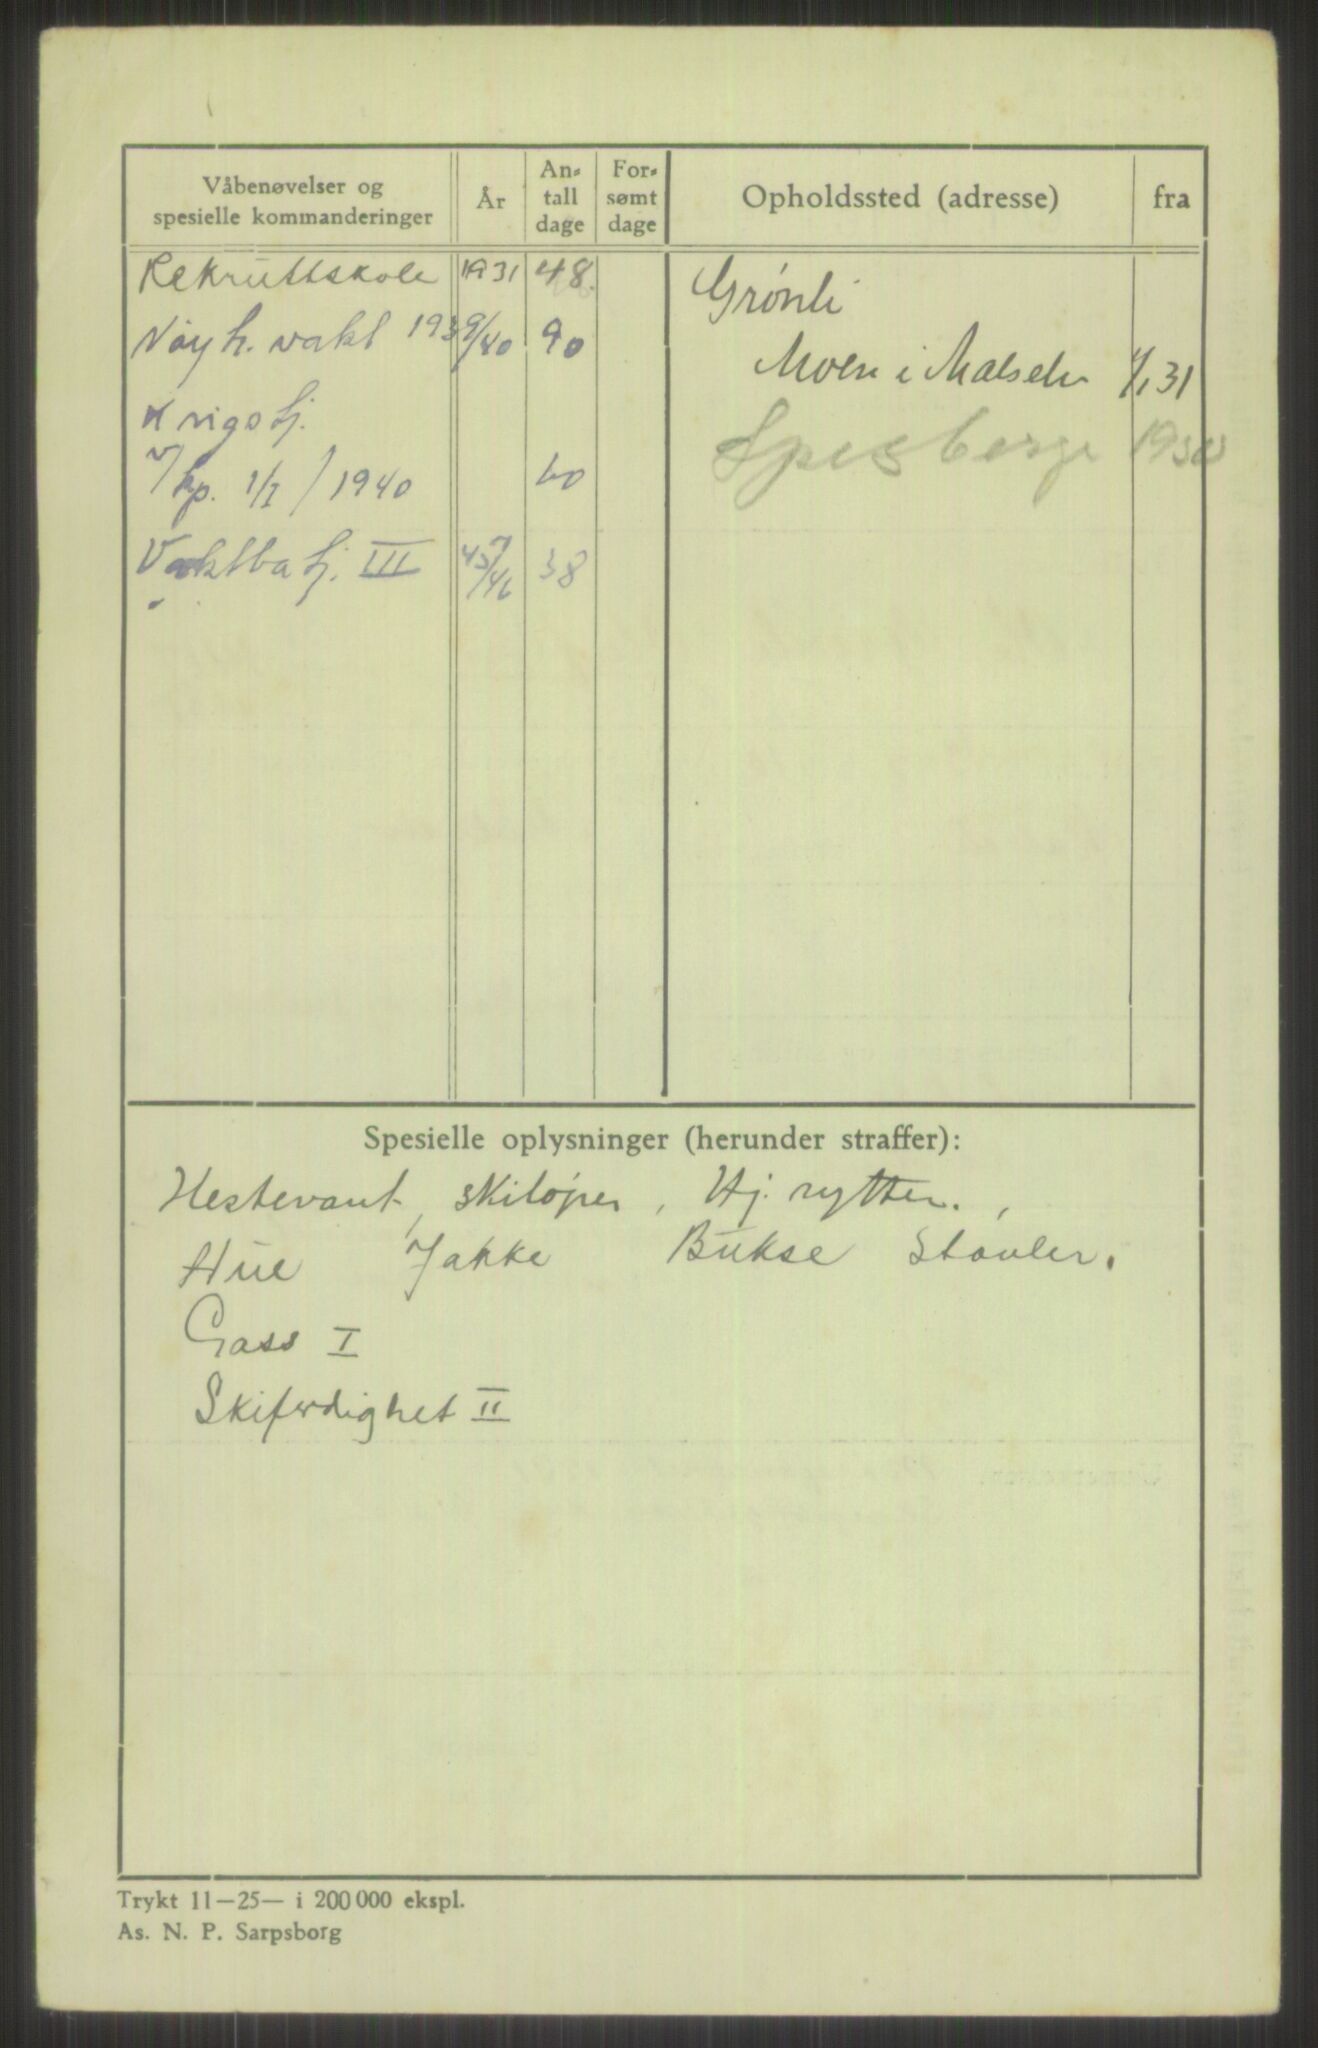 Våbenøvelser og
spesielle kommanderinger
År
An-
tall
dage
For-
sømt
dage
Opholdssted (adresse)
fra
Rekruttskole 1931 48.
Nøy h. vakt 1939/40 90
Krigstj.
v/kp. 1/I / 1940 60
Vaktbatj. III 45/46 38
Grønli
Moen i Målselv 4/1 31
Spesberge 1938
Spesielle oplysninger (herunder straffer):
Hestevant, skiløper, Hj. rytter.,
Hue Jakke Bukse Støvler.
Gass I
Skiferdighet II
Trykt 11—25— i 200 000 ekspl.
As. N. P. Sarpsborg